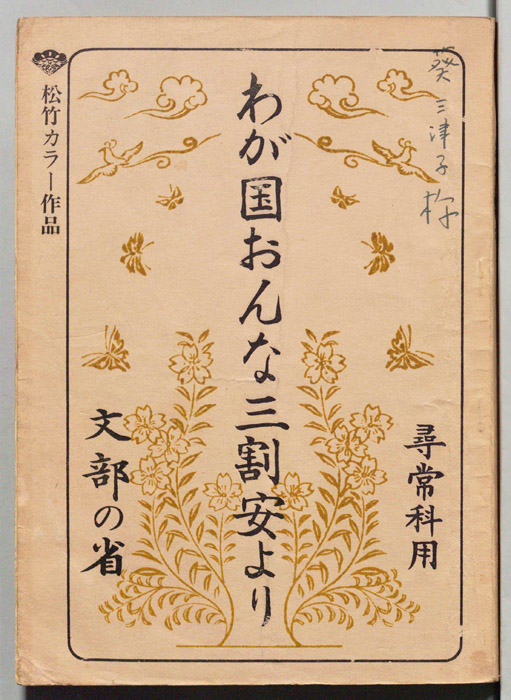 葵三津子様
尋常科用
わが国おんな三割安より
文部の省
松竹カラー作品